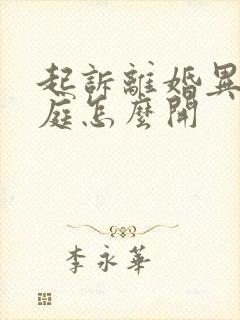 起訴離婚異
庭怎麼開
李永華